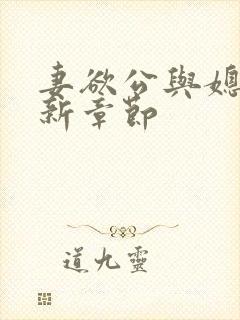 妻欲公與媳
新章節
道九靈